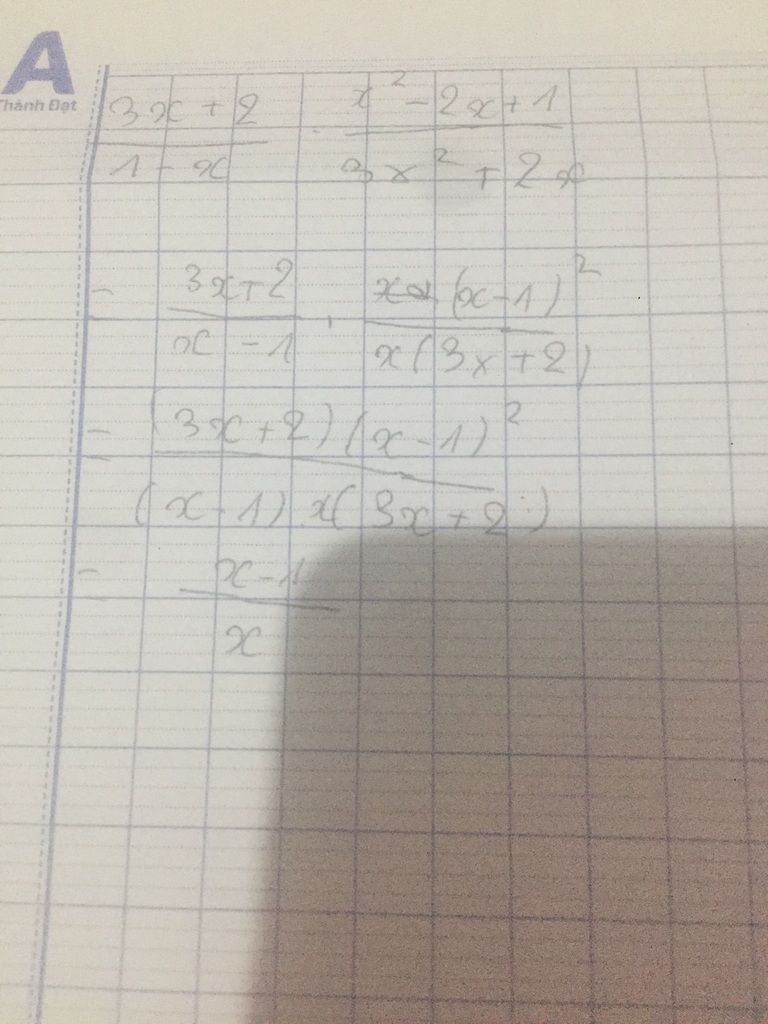 A
Thành Đạt
3x + 2 / 1 - x . x² - 2x + 1 / 3x² + 2x
= 3x + 2 / x - 1 . (x - 1)² / x(3x + 2)
= (3x + 2)(x - 1)² / (x - 1) x(3x + 2)
= x - 1 / x